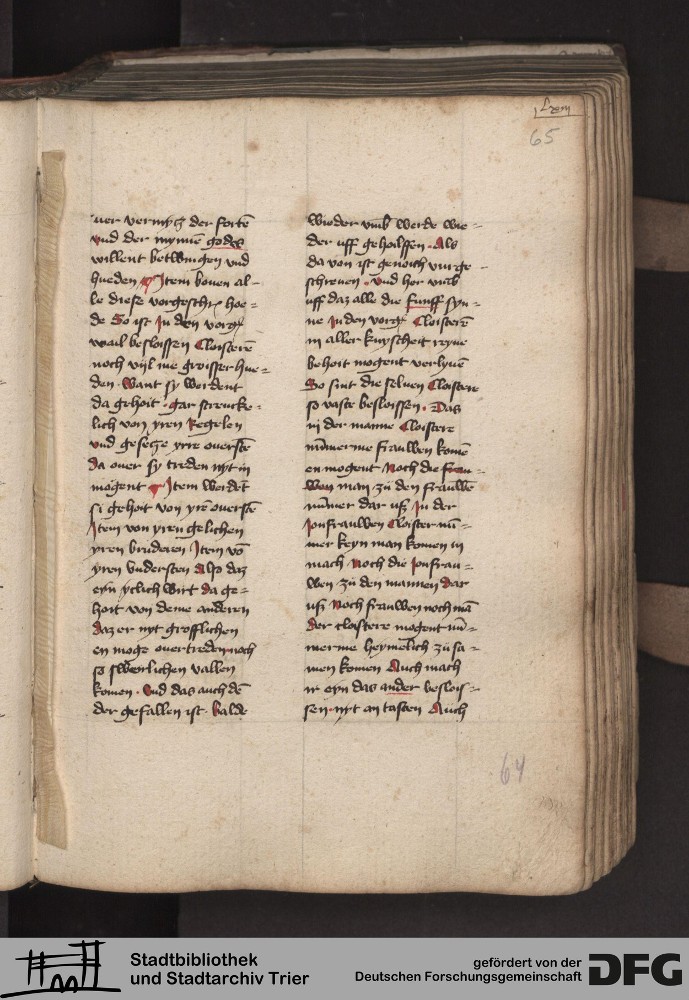 65
uer vermytz der forte
vnd der mynne godes
willent betwingen vnd
hueden Item bouen al-
le diese vorgeschr hoe=
de So ist In den vorg
wail beslossen Cloistere
noch vijl me groisser hue=
den. Want sy werdent
da gehoit. gar strencke=
lich von yren Regelen
vnd gesetze yrre ouerste
da ouer sy treden nyt in
mogent Item werdet
si gehoit von yre ouerste
Item von yren gelichen
yren bruderen Item vo
yren vndersten Also daz
eyn yclich wirt da ge=
hoit von deme anderen
daz er nyt grofflichen
en moge ouertreden noch
so swerlichen vallen
komen. vnd das auch de
der gefallen ist. balde
wieder vmb werde wie=
der uff geholffen. Als
da von ist genoich vur ge=
schreuen. vnd her vmb
uff daz alle die funff syn=
ne In den vorg Cloistere
in aller kuyscheit reyne
behoit mogent verlyue
So sint die seluen Cloistere
so vaste beslossen. Das
in der manne Cloistere
nummerme frauwen kome
en mogent Noch die frau=
wen man zu den frauwe
nummer dar uß In der
Jonfrauwen Cloister num=
mer keyn man komen in
mach Noch die Jonfrau=
wen zu den mannen dar
uß Noch frauwen noch ma
der cloistere mogent num=
merme heymelich zu sa=
men komen Auch mach
ir eyn das ander beslois=
sen. nyt an tasten Auch
64
Stadtbibliothek
und Stadtarchiv Trier
gefördert von der
Deutschen Forschungsgemeinschaft
DFG